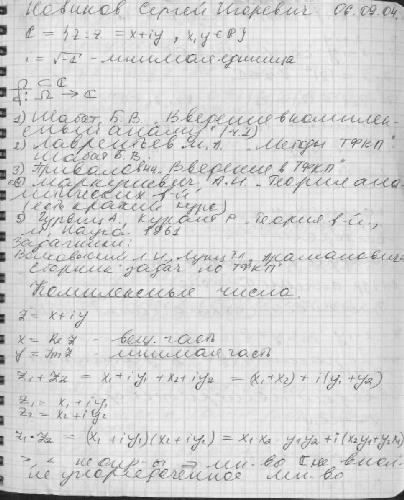 Новиков Сергей Игоревич 06.09.04.
ℂ = {z: z = x+iy, x,y ∈ ℝ}
i = √-1 - мнимая единица
Ω ⊂ ℂ
f: Ω → ℂ
1) Шабат Б.В. „Введение в комплексный анализ" (ч.I)
2) Лаврентьев М.А. „Методы ТФКП"
Шабат Б.В.
3) Привалов „Введение в ТФКП"
4) Маркушевич А.И. „Теория аналитических ф-й"
(есть краткий курс)
5) Гурвиц А., Курант Р. „Теория ф-й",
М., Наука 1961
Задачники:
Волковыский Л.И., Лунц Г.Л., Араманович
„Сборник задач по ТФКП"
Комплексные числа.
z = x+iy
x = Re z - вещ. часть
y = Im z - мнимая часть
z₁+z₂ = x₁+iy₁+x₂+iy₂ = (x₁+x₂)+i(y₁+y₂)
z₁ = x₁+iy₁
z₂ = x₂+iy₂
z₁·z₂ = (x₁+iy₁)(x₂+iy₂) = x₁x₂ y₁y₂+i(x₂y₁+y₂x₁)
мн-во ℂ не вполне упорядоченное мн-во